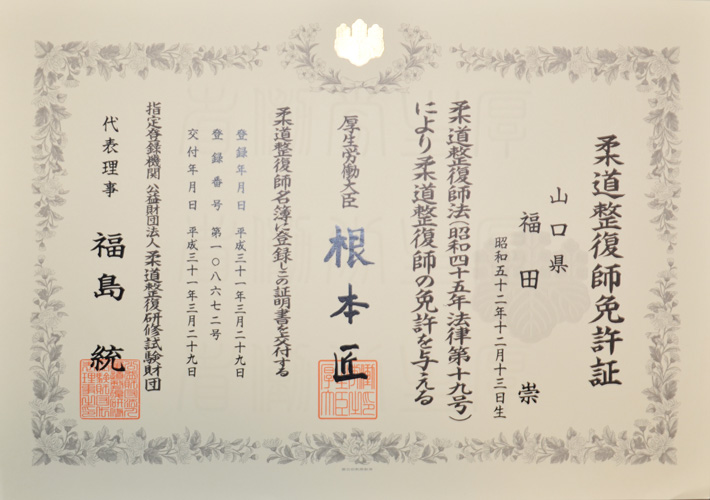 柔道整復師免許証
山口県
福田 崇
昭和五十二年十二月十三日生
柔道整復師法(昭和四十五年法律第十九号)
により柔道整復師の免許を与える
厚生労働大臣 根本匠
柔道整復師名簿に登録しこの証明書を交付する
登録年月日 平成三十一年三月二十九日
登録番号 第一〇八六七二号
交付年月日 平成三十一年三月二十九日
指定登録機関 公益財団法人 柔道整復研修試験財団
代表理事 福島 統